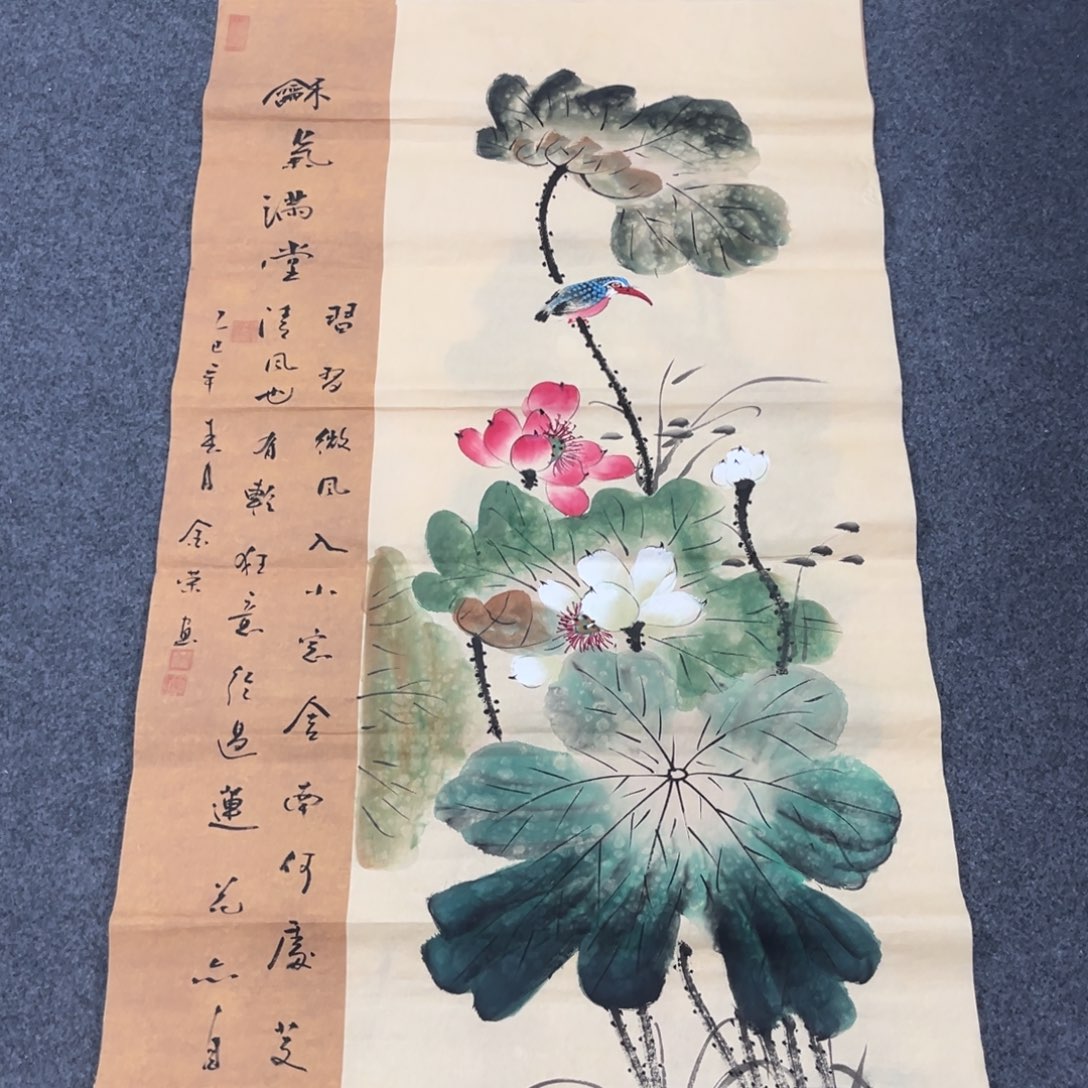 龢氣满堂
習習微风入小窓舍南何處芰
清风也有輕狂意經過蓮花亦自
乙巳年春月金荣画